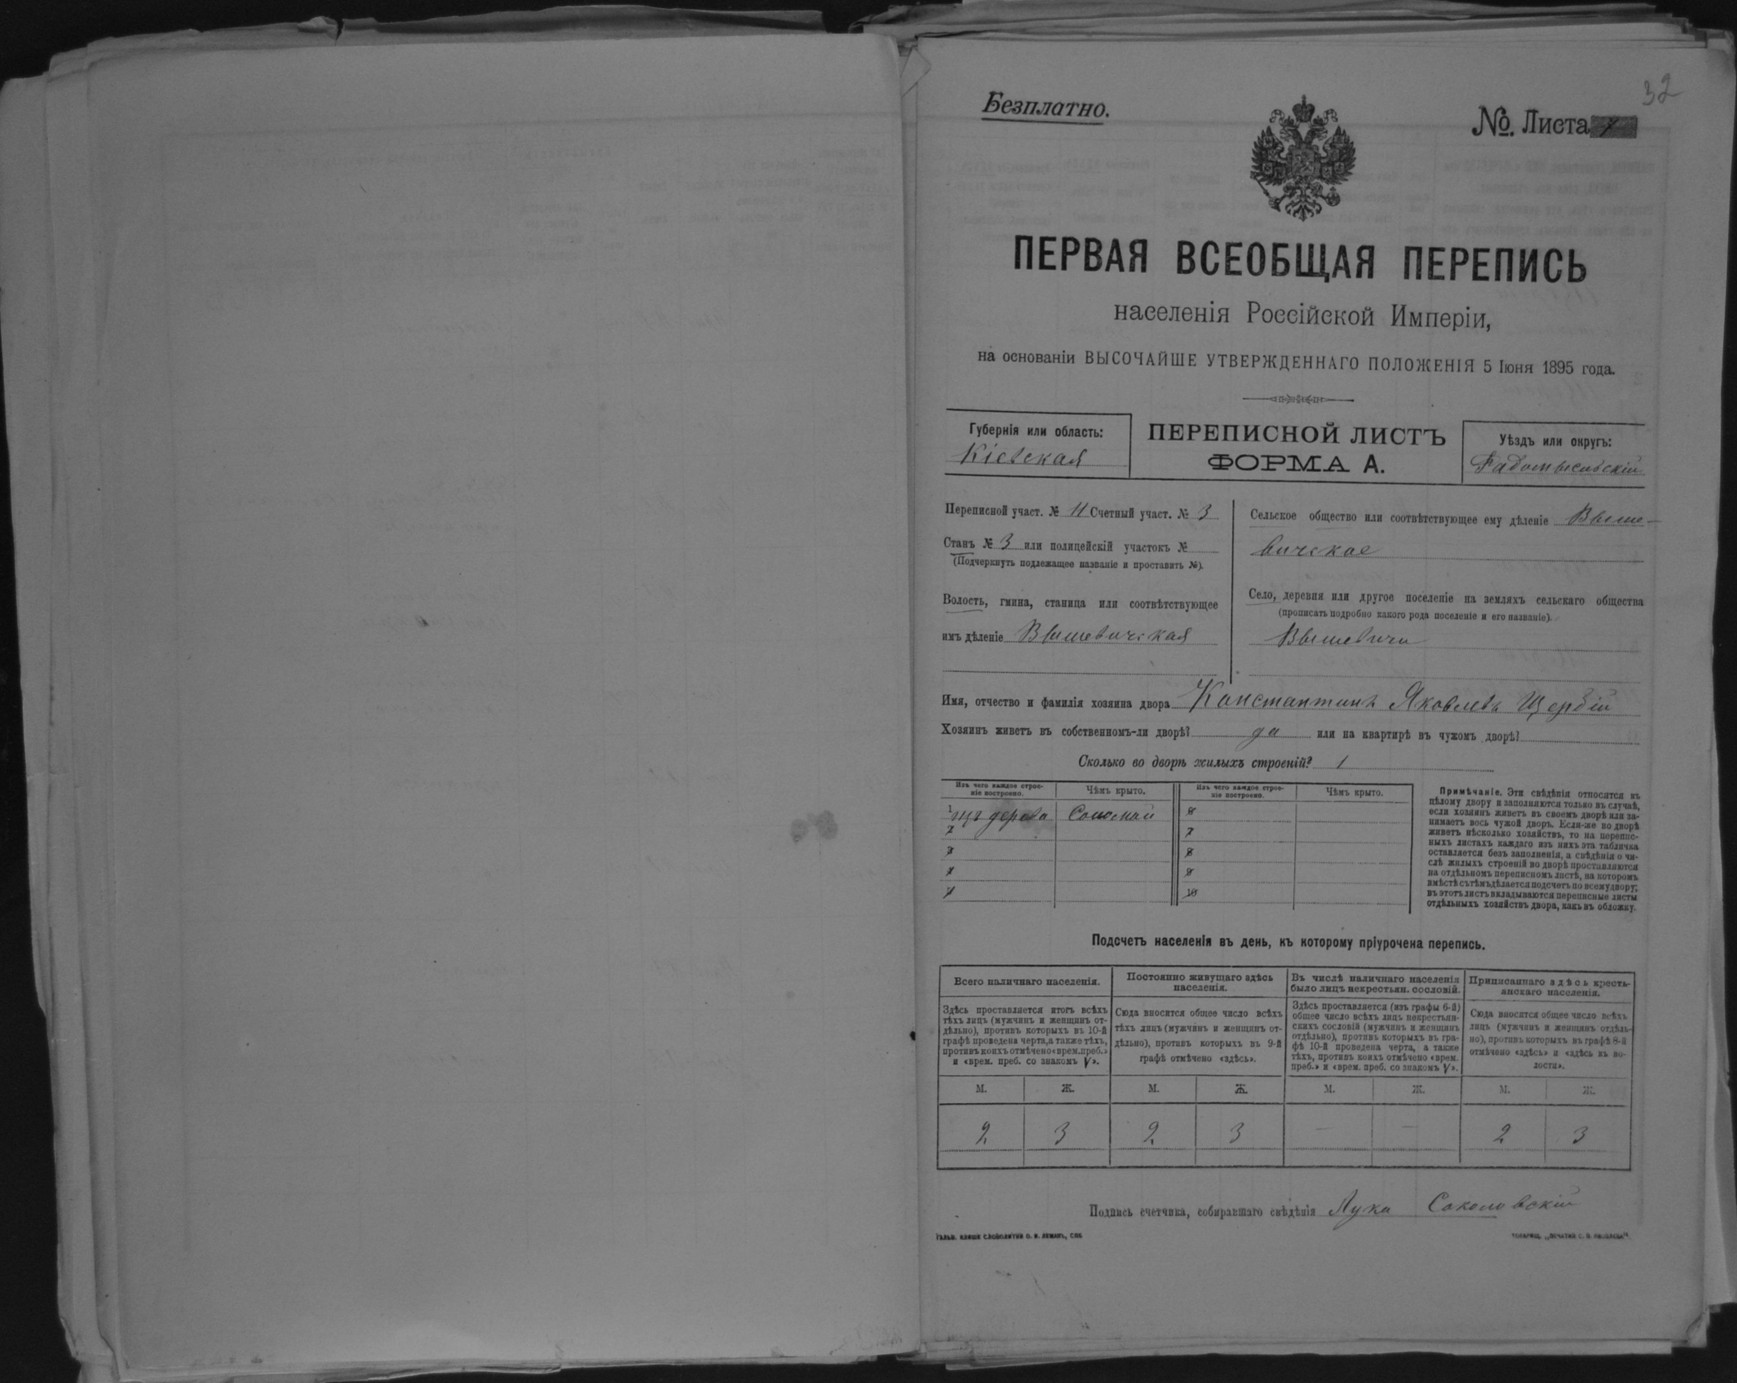 32
Безплатно.
№. Листа 7
ПЕРВАЯ ВСЕОБЩАЯ ПЕРЕПИСЬ
населенія Россійской Имперіи,
на основаніи ВЫСОЧАЙШЕ УТВЕРЖДЕННАГО ПОЛОЖЕНІЯ 5 Іюня 1895 года.
Губернія или область:
Кіевская
ПЕРЕПИСНОЙ ЛИСТЪ
ФОРМА А.
Уѣздъ или округъ:
Радомысльскій
Переписной участ. № 11 Счетный участ. № 3
Станъ № 3 или полицейскій участокъ №
(Подчеркнуть подлежащее названіе и проставить №).
Волость, гмина, станица или соотвѣтствующее
имъ дѣленіе Вышевичская
Сельское общество или соотвѣтствующее ему дѣленіе Выше-
вичское
Село, деревня или другое поселеніе на земляхъ сельскаго общества
(прописать подробно какого рода поселеніе и его названіе).
Вышевичи
Имя, отчество и фамилія хозяина двора Константинъ Яковлевъ Щербій
Хозяинъ живетъ въ собственномъ-ли дворѣ? да или на квартирѣ въ чужомъ дворѣ?
Сколько во дворѣ жилыхъ строеній? 1
Изъ чего каждое строе-
ніе построено.
Чѣмъ крыто.
Изъ чего каждое строе-
ніе построено.
Чѣмъ крыто.
1 изъ дерева Соломой 6
2 7
3 8
4 9
10
Примѣчаніе. Эти свѣдѣнія относятся къ
цѣлому двору и заполняются только въ случаѣ,
если хозяинъ живетъ въ своемъ дворѣ или за-
нимаетъ весь чужой дворъ. Если-же во дворѣ
живетъ нѣсколько хозяйствъ, то на перепис-
ныхъ листахъ каждаго изъ нихъ эта табличка
оставляется безъ заполненія, а свѣдѣнія о чи-
слѣ жилыхъ строеній во дворѣ проставляются
на отдѣльномъ переписномъ листѣ, на которомъ
вмѣстѣ съ тѣмъ дѣлается подсчетъ по всему двору;
въ этотъ листъ вкладываются переписные листы
отдѣльныхъ хозяйствъ двора, какъ въ обложку.
Подсчетъ населенія въ день, къ которому пріурочена перепись.
Всего наличнаго населенія.
Здѣсь проставляется итогъ всѣхъ
тѣхъ лицъ (мужчинъ и женщинъ от-
дѣльно), противъ которыхъ въ 10-й
графѣ проведена черта, а также тѣхъ,
противъ коихъ отмѣчено «врем. преб.»
и «врем. преб. со знакомъ V».
Постоянно живущаго здѣсь
населенія.
Сюда вносится общее число всѣхъ
тѣхъ лицъ (мужчинъ и женщинъ от-
дѣльно), противъ которыхъ въ 9-й
графѣ отмѣчено «здѣсь».
Въ числѣ наличнаго населенія
было лицъ некрестьян. сословій.
Здѣсь проставляется (изъ графы 6-й)
общее число всѣхъ лицъ некрестьян-
скихъ сословій (мужчинъ и женщинъ
отдѣльно), противъ которыхъ въ гра-
фѣ 10-й проведена черта, а также
тѣхъ, противъ коихъ отмѣчено «врем.
преб.» и «врем. преб. со знакомъ V».
Приписаннаго здѣсь кресть-
янскаго населенія.
Сюда вносится общее число всѣхъ
лицъ (мужчинъ и женщинъ отдѣль-
но), противъ которыхъ въ графѣ 8-й
отмѣчено «здѣсь» и «здѣсь въ во-
лости».
М. Ж. М. Ж. М. Ж. М. Ж.
2 3 2 3 — — 2 3
Подпись счетчика, собиравшаго свѣдѣнія Лука Соколовскій